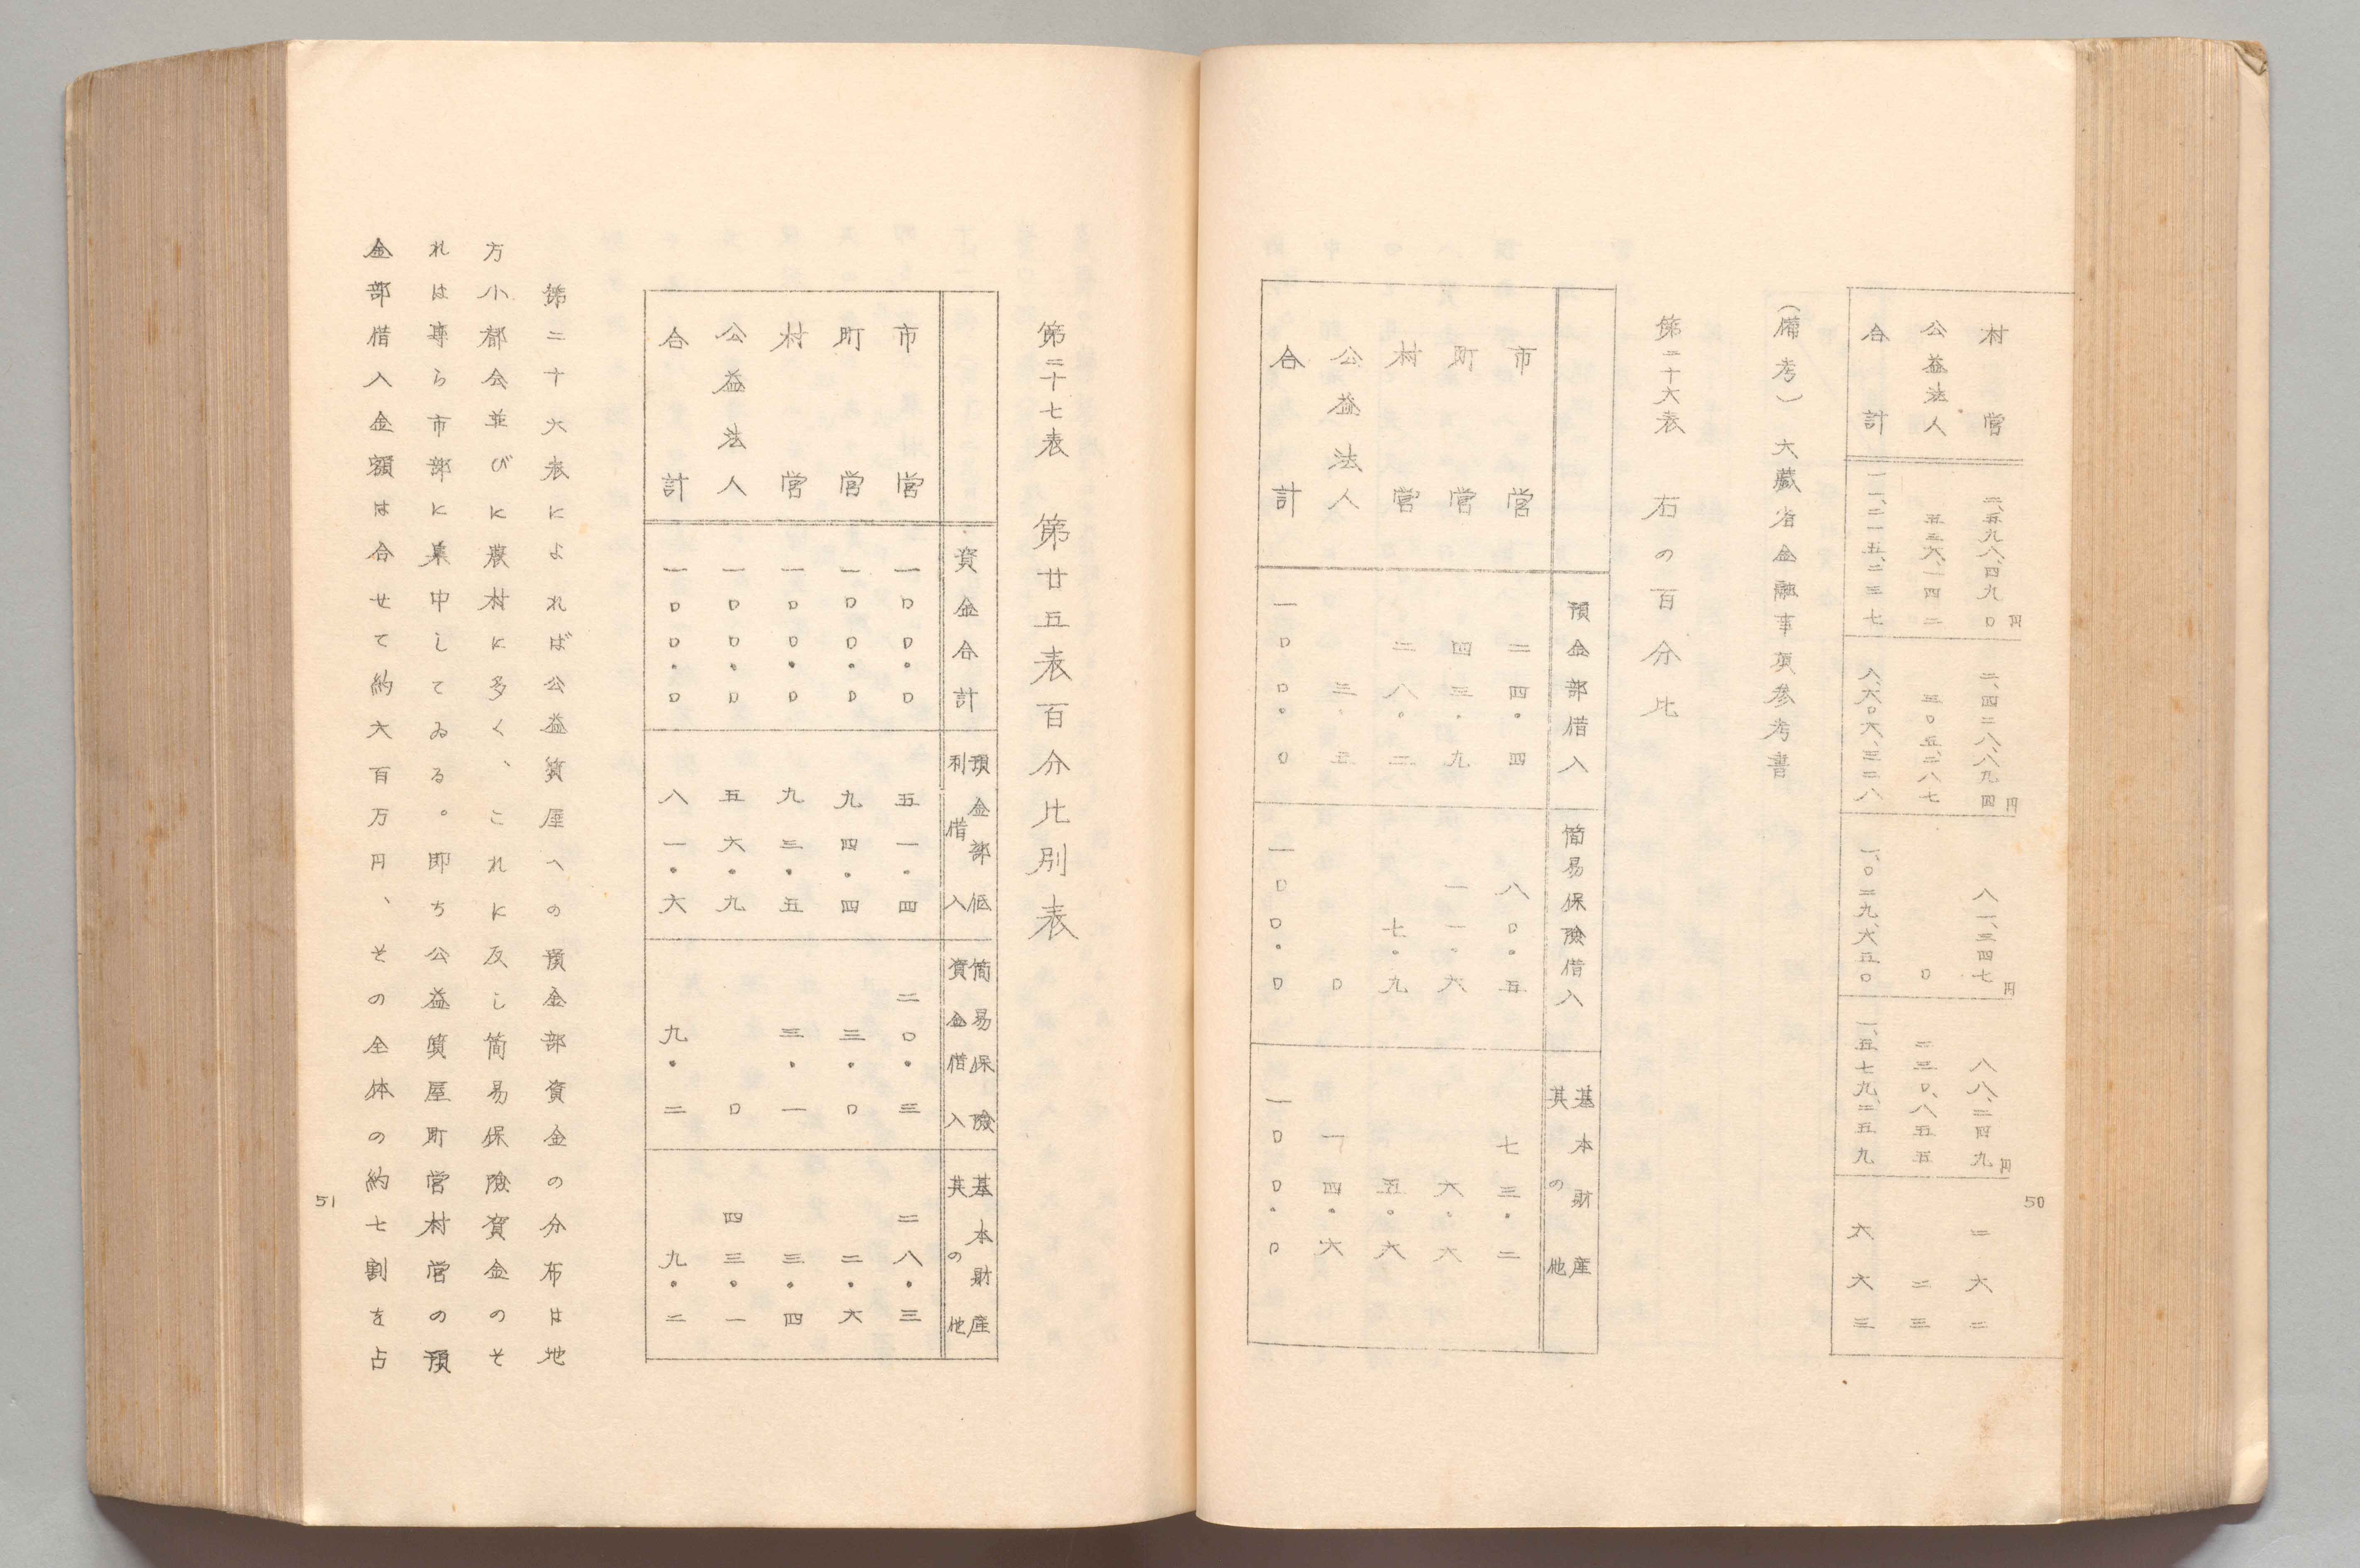 村営 二、五九八、四九〇円 二、四二八、八九四円 八一、三四七円 八八、二四九円 二六二
公益法人 五三六、一四二 三〇五、二八七 〇 二三〇、八五五 二三
合計 一一、二一五、二三七 八、六〇六、三二八 一、〇二九、六五〇 一、五七九、二五九 六六三
(備考) 大藏省金融事項参考書
第二十六表 右の百分比
預金部借入 簡易保險借入 基本財産其の他
市営 二四・四 八〇・五 七三・二
町営 四三・九 一一・六 六・六
村営 二八・二 七・九 五・六
公益法人 三・五 〇 一四・六
合計 一〇〇・〇 一〇〇・〇 一〇〇・〇
50
第二十七表 第廿五表百分比別表
資金合計 預金部低利借入 簡易保險資金借入 基本財産其の他
市営 一〇〇・〇 五一・四 二〇・三 二八・三
町営 一〇〇・〇 九四・四 三・〇 二・六
村営 一〇〇・〇 九三・五 三・一 三・四
公益法人 一〇〇・〇 五六・九 〇 四三・一
合計 一〇〇・〇 八一・六 九・二 九・二
第二十六表によれば公益質屋への預金部資金の分布は地
方小都会並びに農村に多く、これに反し簡易保險資金のそ
れは専ら市部に集中してゐる。即ち公益質屋町営村営の預
金部借入金額は合せて約六百万円、その全体の約七割を占
51